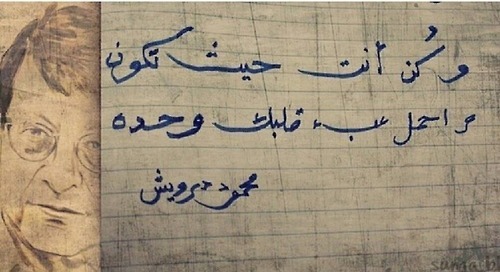 وكُن أنت حيث تكون
و احمل عبء قلبك وحده
محمود درويش